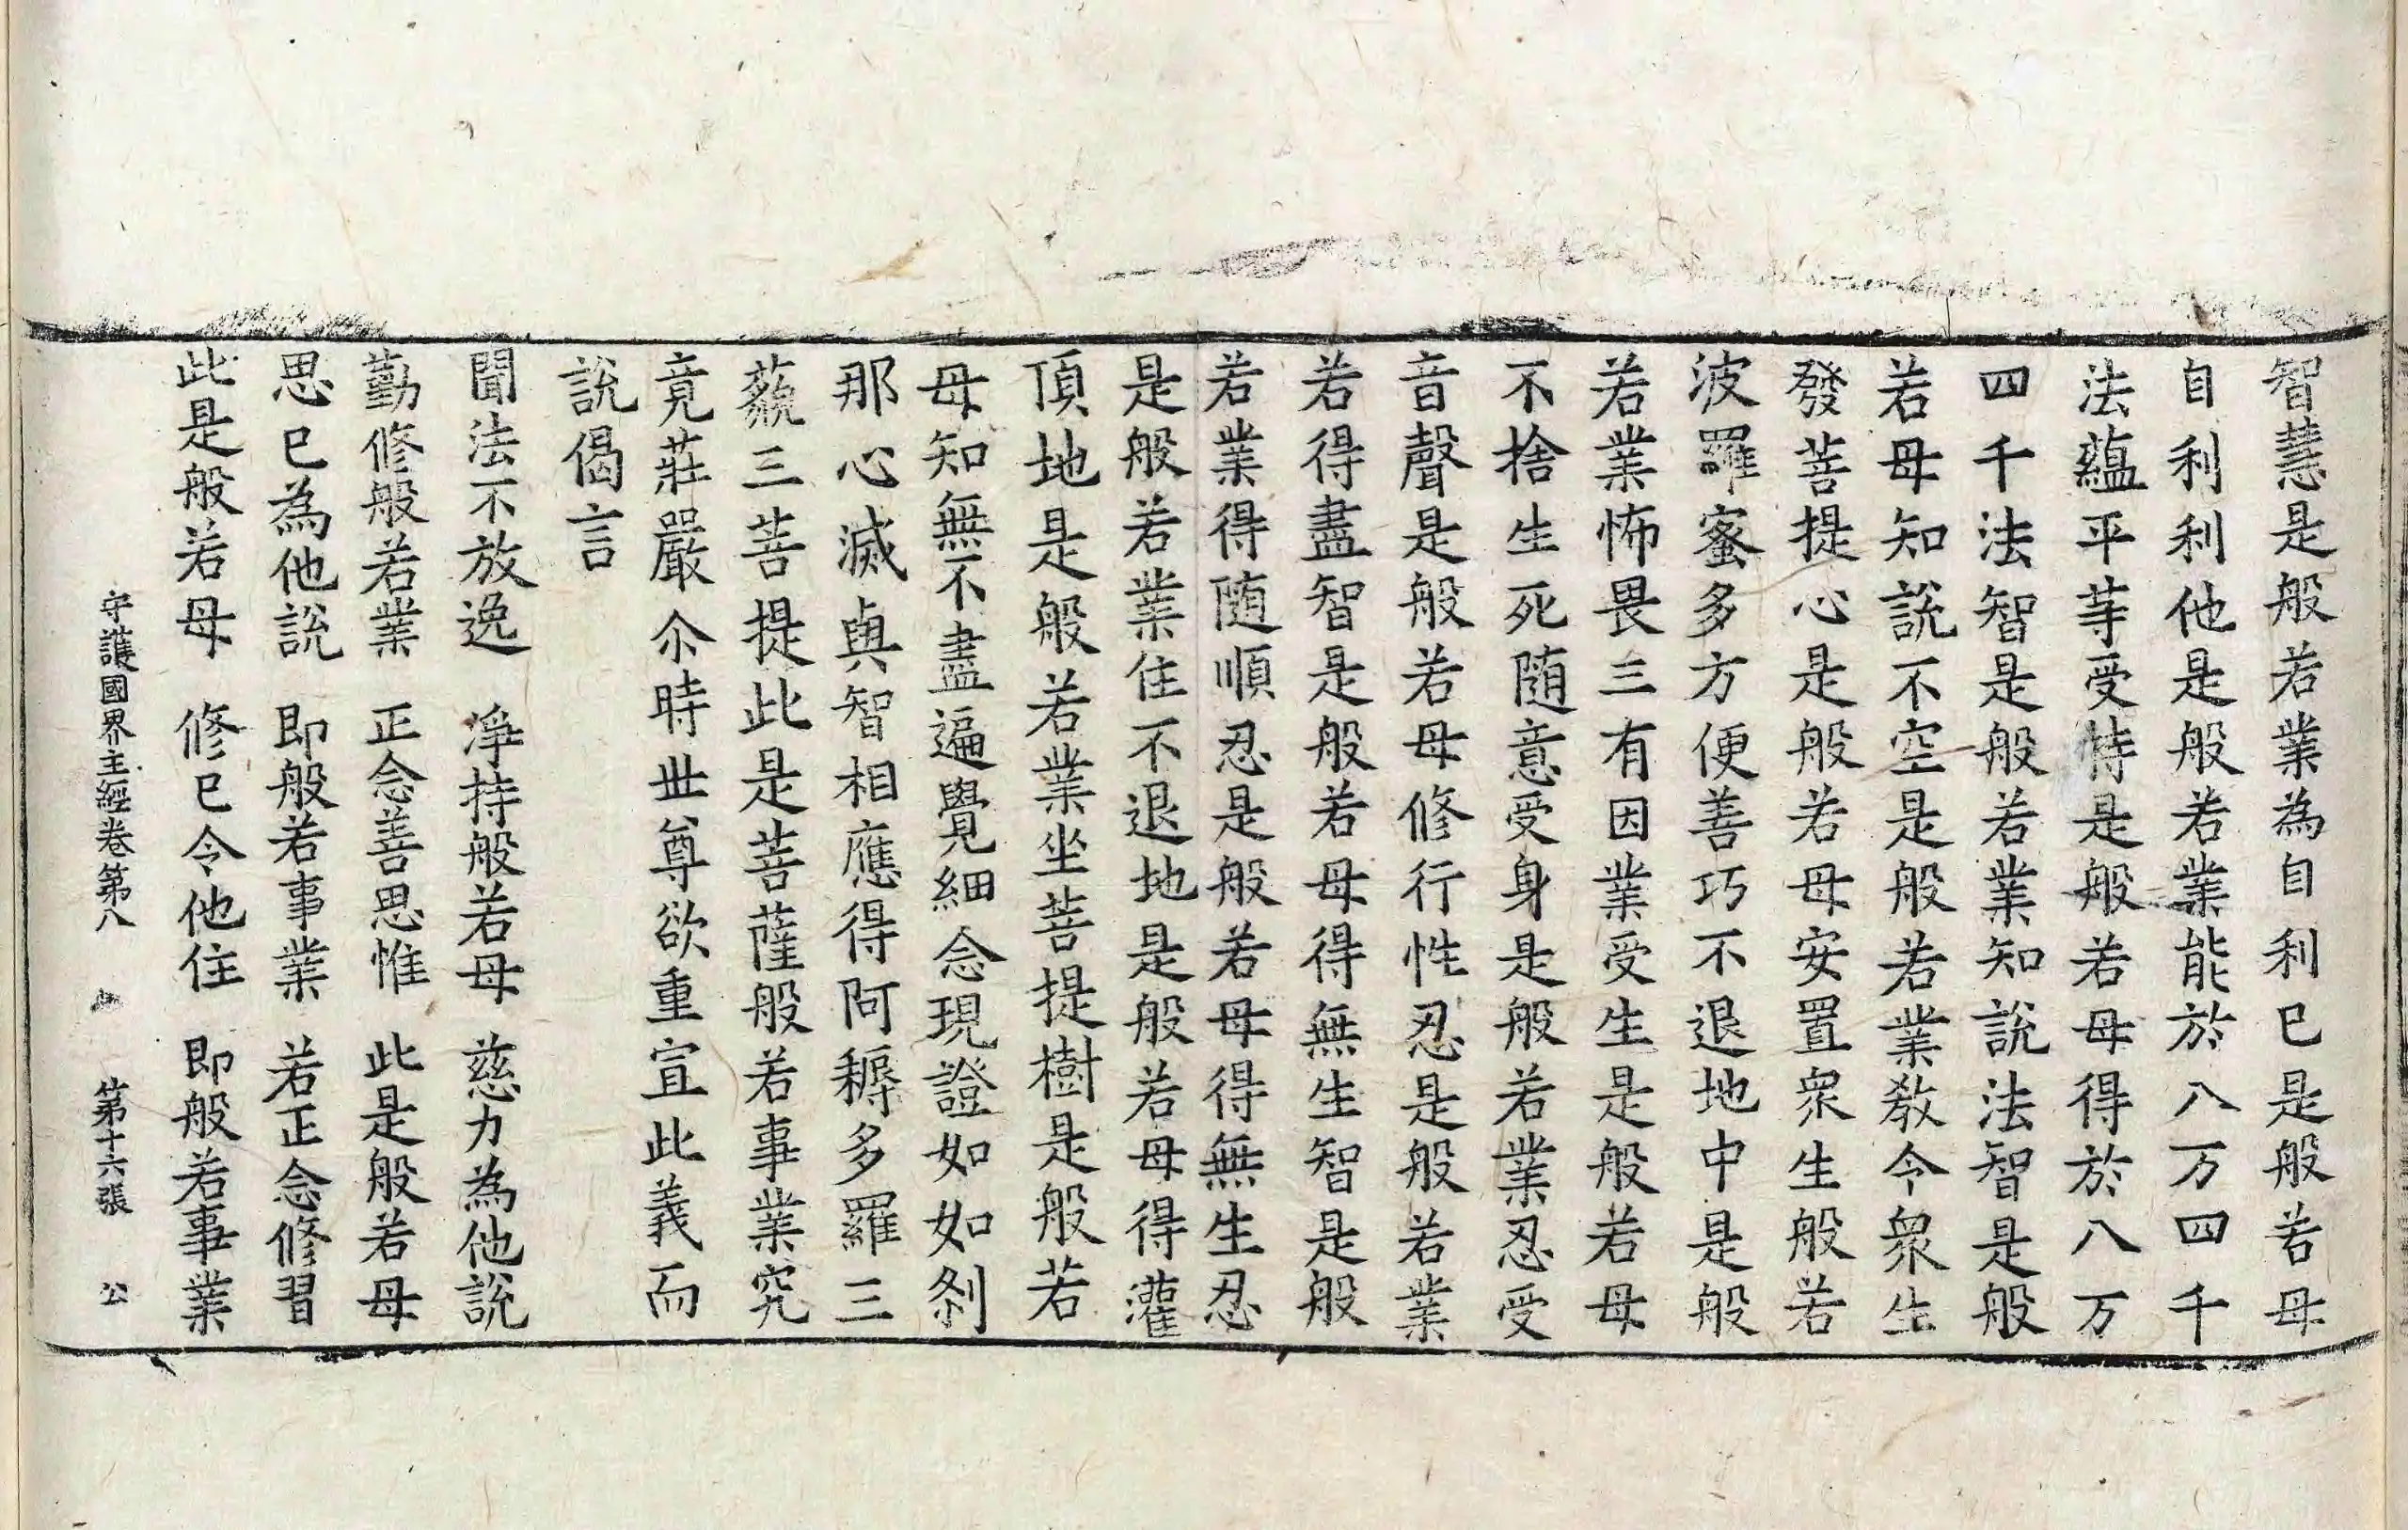 智慧是般若業為自利已是般若母
自利利他是般若業能於八万四千
法蘊平等受持是般若母得於八万
四千法智是般若業知說法智是般
若母知說不空是般若業教令眾生
發菩提心是般若母安置眾生般若
波羅蜜多方便善巧不退地中是般
若業怖畏三有因業受生是般若母
不捨生死随意受身是般若業忍受
音聲是般若母修行性忍是般若業
若得盡智是般若母得無生智是般
若業得随順忍是般若母得無生忍
是般若業住不退地是般若母得灌
頂地是般若業坐菩提樹是般若
母知無不盡遍覺細念現證如如剎
那心滅與智相應得阿耨多羅三
藐三菩提此是菩薩般若事業究
竟莊嚴尒時世尊欲重宣此義而
說偈言
聞法不放逸　淨持般若母　慈力為他說
勤修般若業　正念善思惟　此是般若母
思已為他說　即般若事業　若正念修習
此是般若母　修已令他住　即般若事業
守護國界主經卷第八　第十六張　公